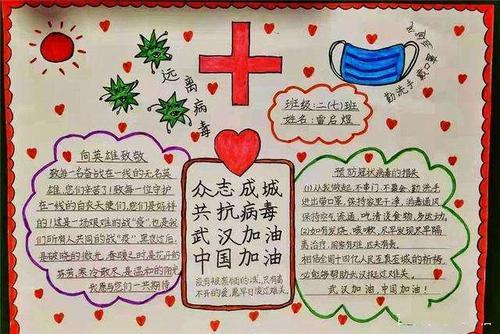 远离病毒
勤洗手 戴口罩
班级:二(七)班
姓名:雷启煜
向英雄致敬
致每一名奋战在一线的无名英
雄,您们辛苦了!致每一位守护
在一线的白衣天使,您们是好样
的!这是一场艰难的战"疫"也是我
们所有人共同的战"疫"黑夜过后,
是破晓的微光,春暖之时是花开的
芬芳,寒冷散尽,是温和的阳光
我愿与您们一共期待
众志成城
共抗病毒
武汉加油
中国加油
没有
不开的爱,愿早日渡过难关。
预防冠状病毒的措失
(1)从我做起,不串门,不聚会,勤洗手
进出带口罩,保持家里干净,消毒通风
保持空气流通,吃清淡食物,多运动。
(2)如有发烧,咳嗽,尽早发现尽早隔
离治疗,国家有难,匹夫有责。
相信全国十四亿人民至真至诚的祈祷,
必能够帮助大汉挺过难关。
武汉加油,中国加油!